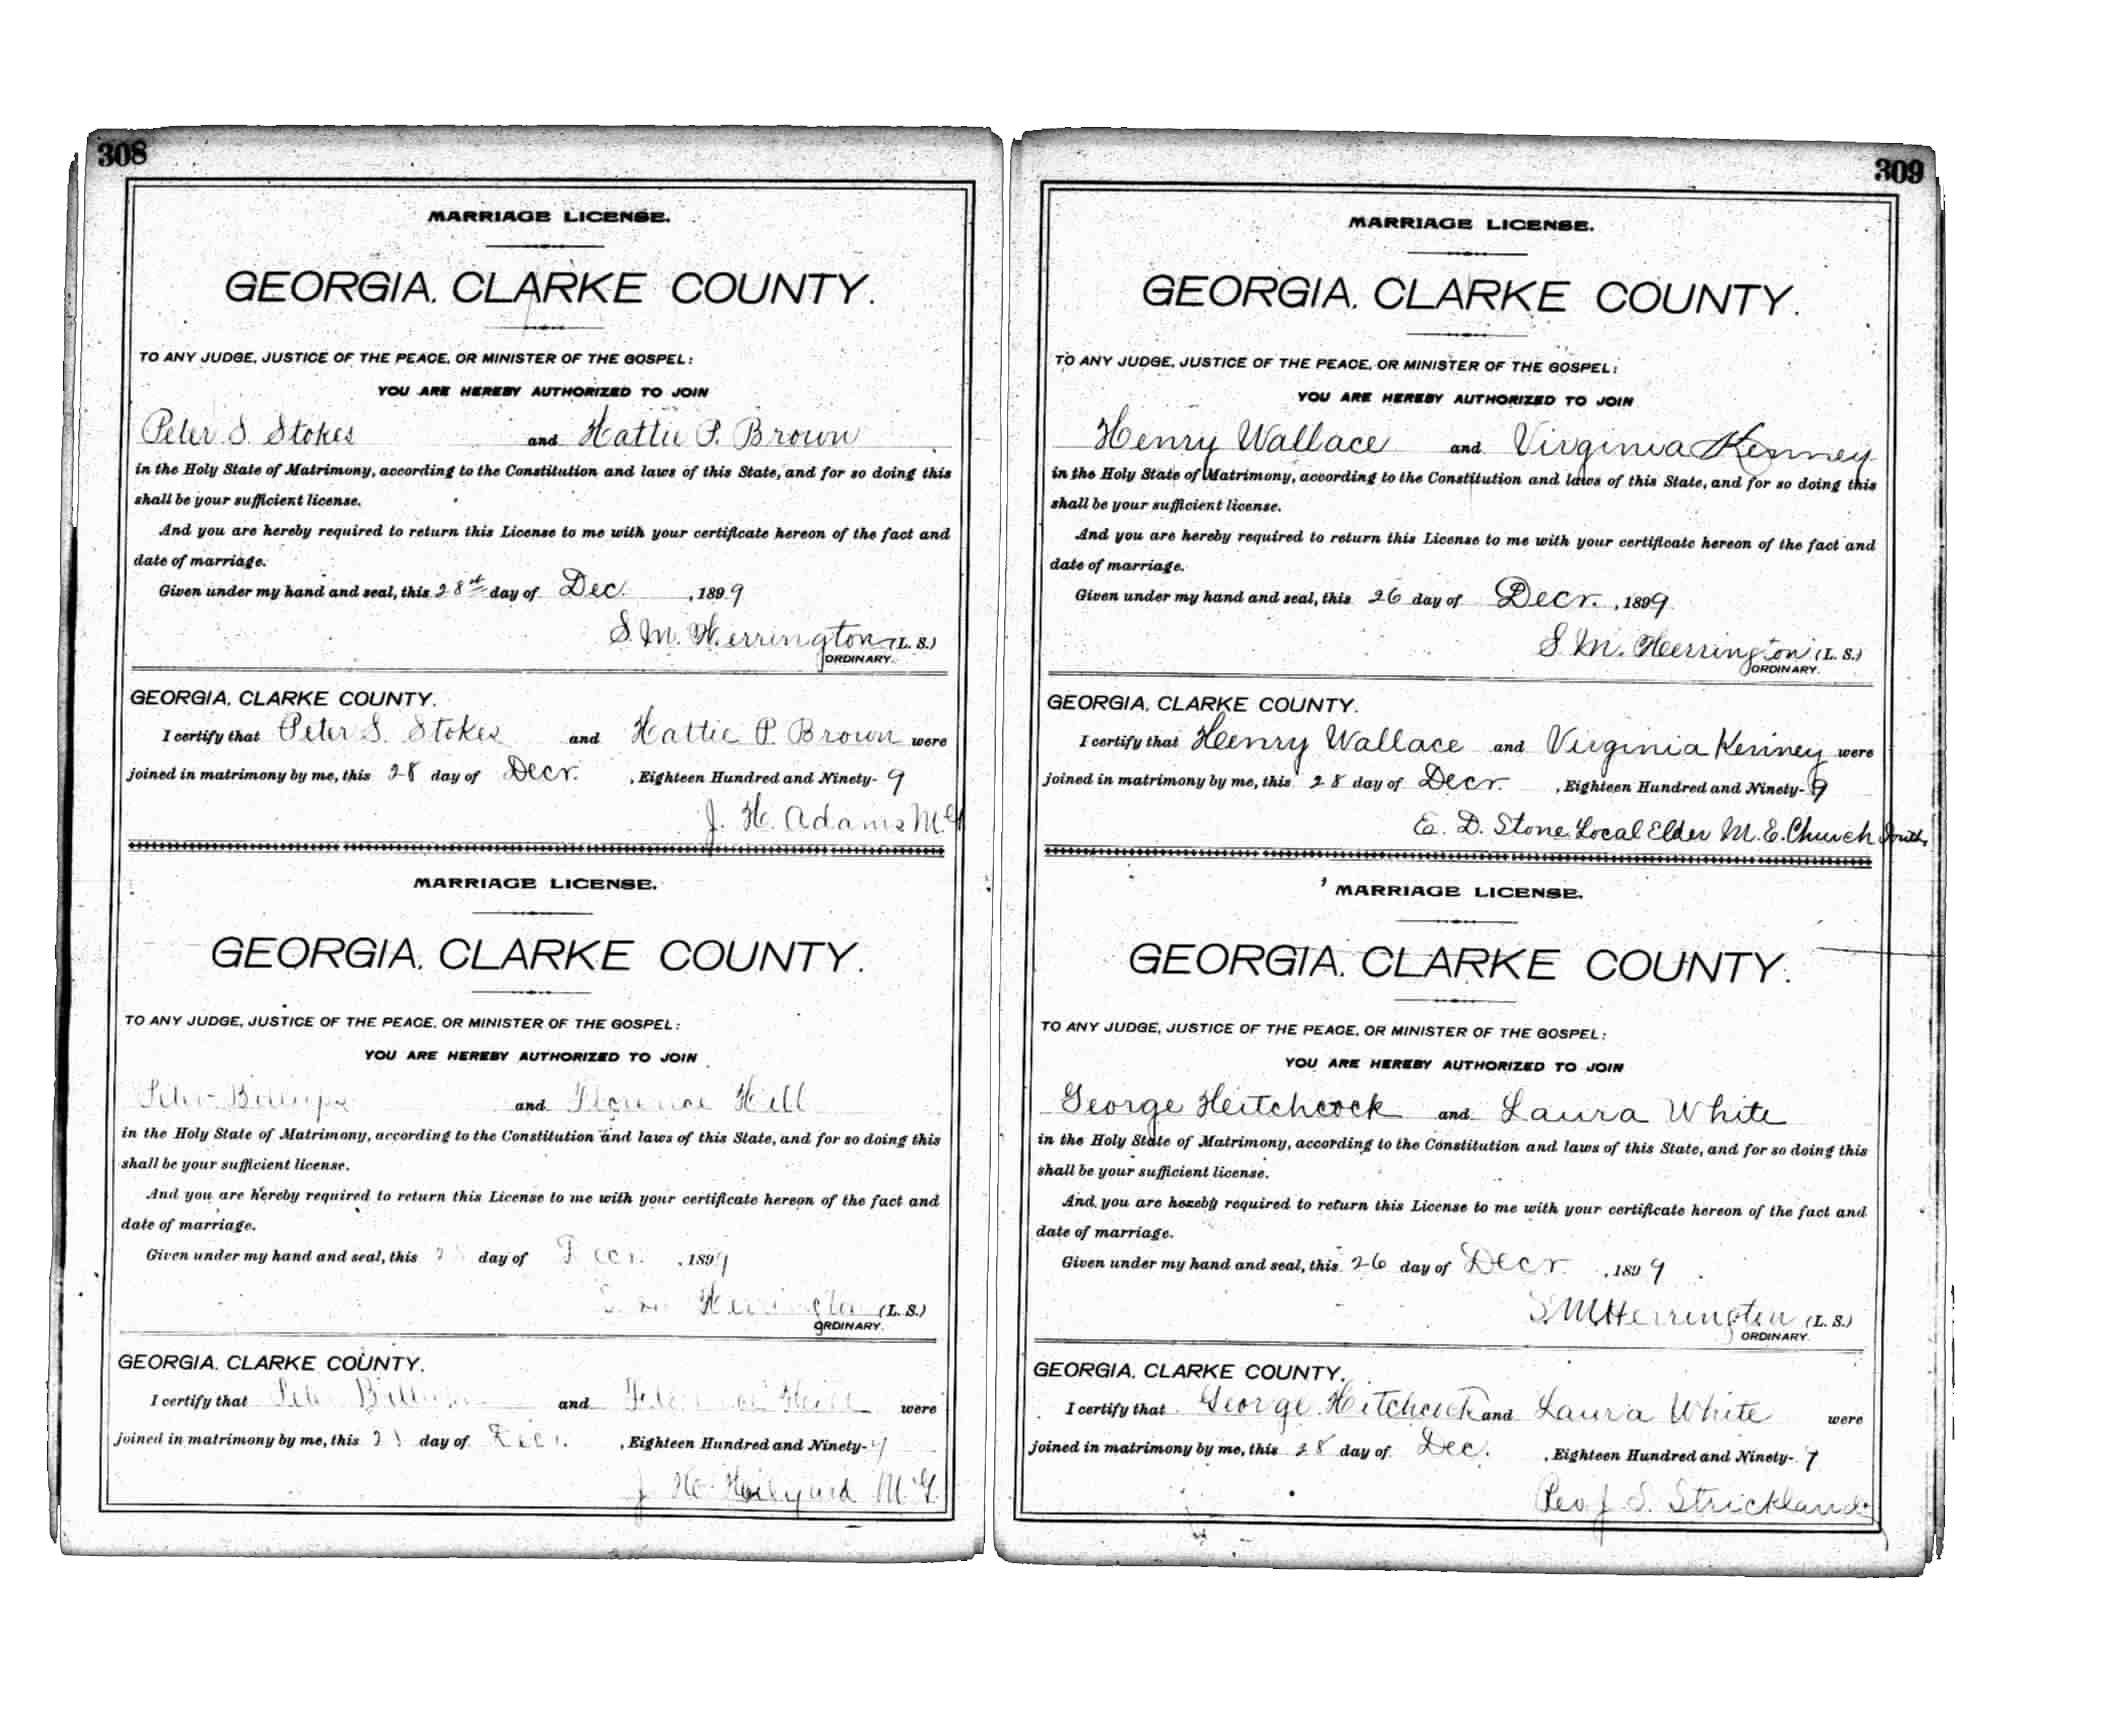 308
MARRIAGE LICENSE.
GEORGIA, CLARKE COUNTY.
TO ANY JUDGE, JUSTICE OF THE PEACE, OR MINISTER OF THE GOSPEL:
YOU ARE HEREBY AUTHORIZED TO JOIN
Peter S. Stokes and Hattie P. Brown
in the Holy State of Matrimony, according to the Constitution and laws of this State, and for so doing this
shall be your sufficient license.
And you are hereby required to return this License to me with your certificate hereon of the fact and
date of marriage.
Given under my hand and seal, this 28 day of Dec. , 1899
S. M. Herrington (L. S.)
ORDINARY.
GEORGIA, CLARKE COUNTY.
I certify that Peter S. Stokes and Hattie P. Brown were
joined in matrimony by me, this 28 day of Decr. , Eighteen Hundred and Ninety-9
J. H. Adams M.G.
MARRIAGE LICENSE.
GEORGIA, CLARKE COUNTY.
TO ANY JUDGE, JUSTICE OF THE PEACE, OR MINISTER OF THE GOSPEL:
YOU ARE HEREBY AUTHORIZED TO JOIN
Peter Billups and Florence Hill
in the Holy State of Matrimony, according to the Constitution and laws of this State, and for so doing this
shall be your sufficient license.
And you are hereby required to return this License to me with your certificate hereon of the fact and
date of marriage.
Given under my hand and seal, this day of Decr. , 1899
S. M. Herrington (L. S.)
ORDINARY.
GEORGIA, CLARKE COUNTY.
I certify that Peter Billups and Florence Hill were
joined in matrimony by me, this day of Decr. , Eighteen Hundred and Ninety-9
J. H. M. G.
309
MARRIAGE LICENSE.
GEORGIA, CLARKE COUNTY.
TO ANY JUDGE, JUSTICE OF THE PEACE, OR MINISTER OF THE GOSPEL:
YOU ARE HEREBY AUTHORIZED TO JOIN
Henry Wallace and Virginia Kenney
in the Holy State of Matrimony, according to the Constitution and laws of this State, and for so doing this
shall be your sufficient license.
And you are hereby required to return this License to me with your certificate hereon of the fact and
date of marriage.
Given under my hand and seal, this 26 day of Decr. , 1899
S. M. Herrington (L. S.)
ORDINARY.
GEORGIA, CLARKE COUNTY.
I certify that Henry Wallace and Virginia Kenney were
joined in matrimony by me, this 28 day of Decr. , Eighteen Hundred and Ninety-9
E. D. Stone Local Elder M. E. Church South,
MARRIAGE LICENSE.
GEORGIA, CLARKE COUNTY.
TO ANY JUDGE, JUSTICE OF THE PEACE, OR MINISTER OF THE GOSPEL:
YOU ARE HEREBY AUTHORIZED TO JOIN
George Heitchcock and Laura White
in the Holy State of Matrimony, according to the Constitution and laws of this State, and for so doing this
shall be your sufficient license.
And you are hereby required to return this License to me with your certificate hereon of the fact and
date of marriage.
Given under my hand and seal, this 26 day of Decr. , 1899
S. M. Herrington (L. S.)
ORDINARY.
GEORGIA, CLARKE COUNTY.
I certify that George Hitchcock and Laura White were
joined in matrimony by me, this 28 day of Dec. , Eighteen Hundred and Ninety-9
Rev. J. S. Strickland